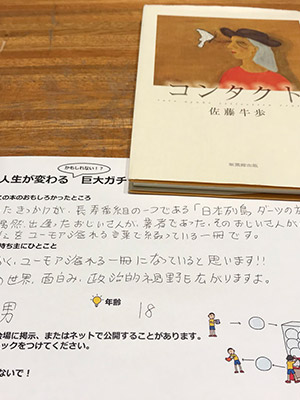 コンタクト
佐藤牛歩
かもしれない!?
人生が変わる 巨大ガチ
この本のおもしろかったところ
たきっかけが、長寿番組の一つである「日本列島 ダーツの
偶然、出逢ったおじいさんが、著者であった。そのおじいさんが
ユーモア溢れる言葉で綴っている一冊です。
持ち主にひとこと
く、ユーモア溢れる一冊になっていると思います!!
の世界、面白み、政治的視野も広がりますよ。
男
年齢
18
会場に掲示、またはネットで公開することがあります。
ックをつけてください。
ないで!